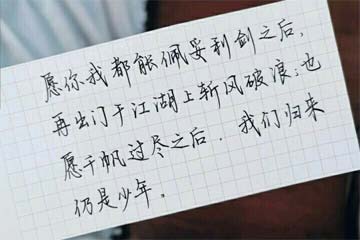 愿你我都能佩妥利剑之后，
再出门于江湖上斩风破浪；也
愿千帆过尽之后，我们归来
仍是少年。